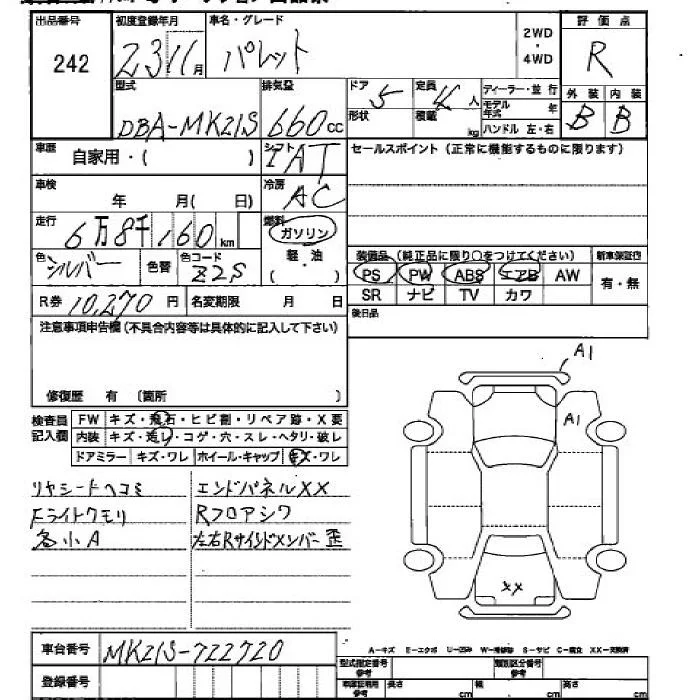 出品番号 初度登録年月 車名・グレード 2WD・4WD 評価点
242 23 11月 パレット R
型式 排気量 ドア 定員 ディーラー・並行 外装 内装
DBA-MK21S 660cc 5 4人 モデル年式 年 B B
形状 積載 kg ハンドル 左・右
車歴 自家用・( ) シフト IAT セールスポイント(正常に機能するものに限ります)
車検 年 月( 日) 冷房 AC
走行 6万8千160km 燃料 ガソリン
軽・油
( )
色 シルバー 色替 色コード Z2S
装備品(純正品に限り○をつけてください) 新車保証付
PS PW ABS エアB AW 有・無
SR ナビ TV カワ
R券 10,270円 名変期限 月 日
後日品
注意事項申告欄(不具合内容等は具体的に記入して下さい)
修復歴 有 (箇所 )
A1
A1
検査員記入欄 FW キズ・飛石・ヒビ割・リペア跡・X要
内装 キズ・汚レ・コゲ・穴・スレ・ヘタリ・破レ
ドアミラー キズ・ワレ ホイール・キャップ キズ・ワレ
リヤシードヘコミ エンドパネルXX
Fライトクモリ Rフロアシワ
各小A 左右Rサイドメンバー歪
XX
車台番号 MK21S-722720
A-キズ E-エクボ U-凹み W-補修跡 S-サビ C-腐食 XX-交換済
登録番号
型式指定番号 参考 類別区分番号 参考
車検証利用 参考 長さ cm 幅 cm 高さ cm